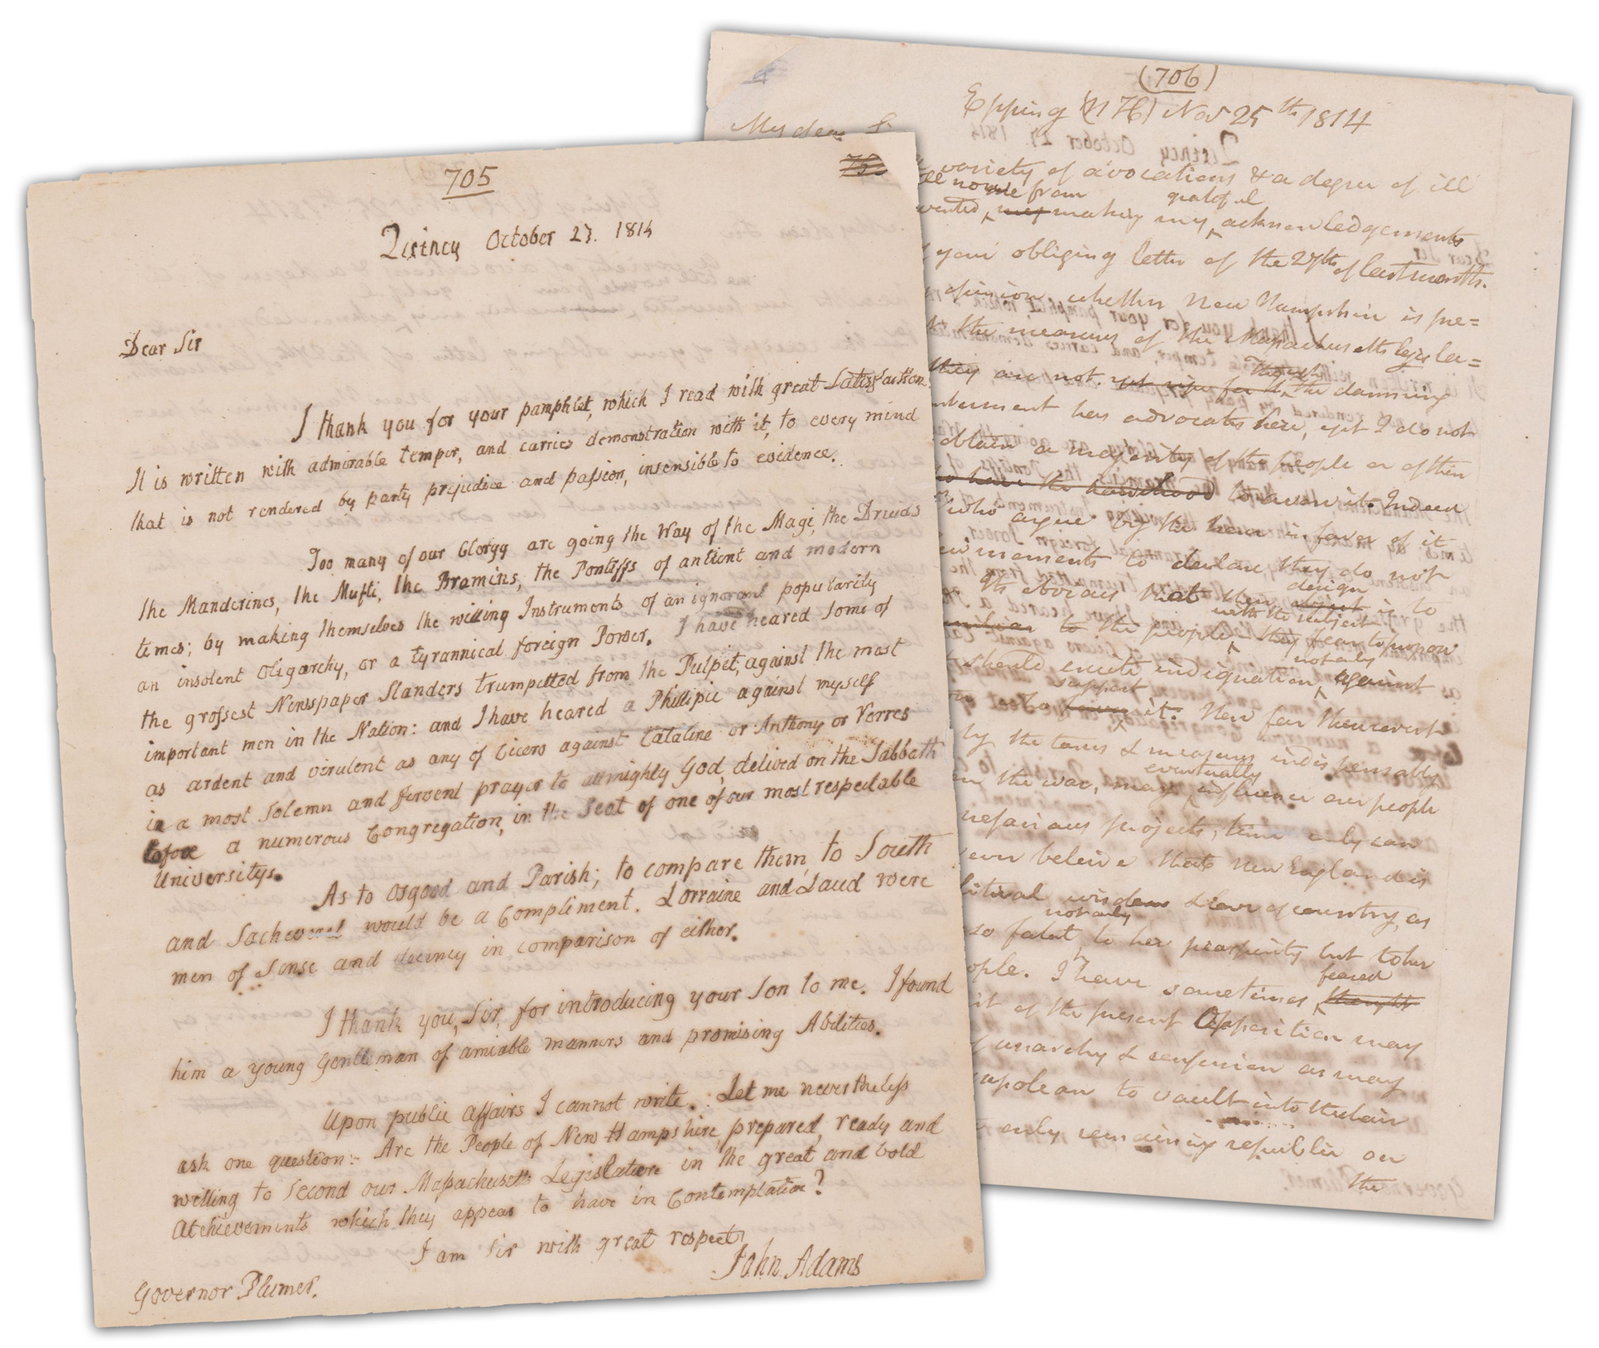 705
Quincy October 27. 1814
Dear Sir
I thank you for your pamphlet, which I read with great Satisfaction.
It is written with admirable temper, and carries demonstration with it, to every mind
that is not rendered by party prejudice and passion, insensible to evidence.
Too many of our Clergy are going the Way of the Magi, the Druids
the Manderines, the Mufti, the Bramins, the Pontiffs of antient and modern
times; by making themselves the willing Instruments of an ignorant popularity
an insolent Oligarchy, or a tyrannical foreign Power. I have heared some of
the grossest Newspaper Slanders trumpetted from the Pulpit, against the most
important men in the Nation: and I have heared a Phillipic against myself
as ardent and virulent as any of Cicero against Cataline or Anthony or Verres
in a most solemn and fervent prayer to almighly God, delived on the Sabbath
before a numerous Congregation, in the Seat of one of our most respectable
Universitys.
As to Osgood and Parish; to compare them to South
and Sacheverel would be a Compliment. Lorraine and Laud were
men of Sense and decency in comparison of either.
I thank you, Sir, for introducing your Son to me. I found
him a young Gentleman of amiable manners and promising Abilities.
Upon public affairs I cannot write. Let me nevertheless
ask one question: Are the People of New Hampshire, prepared, ready and
willing to second our Massachusetts Legislature in the great and bold
Atchievements which they appear to have in Contemplation?
I am Sir with great respect
John Adams
Governor Plumer.
(706)
Epping (N H) Nov 25th 1814
My dear
variety of avocations & a degree of ill
now from grateful
making my acknowledgements
your obliging letter of the 27th of last month.
opinion whether New Hampshire is pre=
the measures of the Massachusetts legisla=
Though
they are not. yet ripe for it, the damning
has advocates here, yet I do not
obtain a majority of the people or of their
the hardihood to avow it. Indeed
who argue in favor of it
to declare they do not
design
Its obvious that their object is to
with the subject
to the people they fear to
not only
should excite indignation against
support
it. How far
by the taxes & measures indispensably
eventually
the war, may influence our people
nefarious projects, time only can
ever beleive that New England is
political wisdom & love of country, as
not only
so fatal to her prosperity but to her
feared
people. I have sometimes thought
of the present Opposition may
anarchy & confusion as may
Napoleon to vault into the
only remaining republic on
the